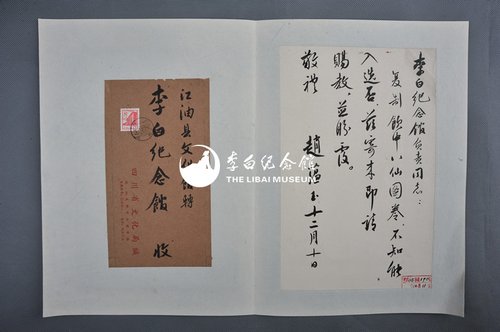 李白纪念馆负责同志：
复制饮中八仙图卷不知能
入选否兹寄来即请
赐教并盼覆。
敬礼
赵蕴玉十二月十日
江油县文化馆转
李白纪念馆 收
四川省文化局缄
李白纪念館
THE LIBAI MUSEUM